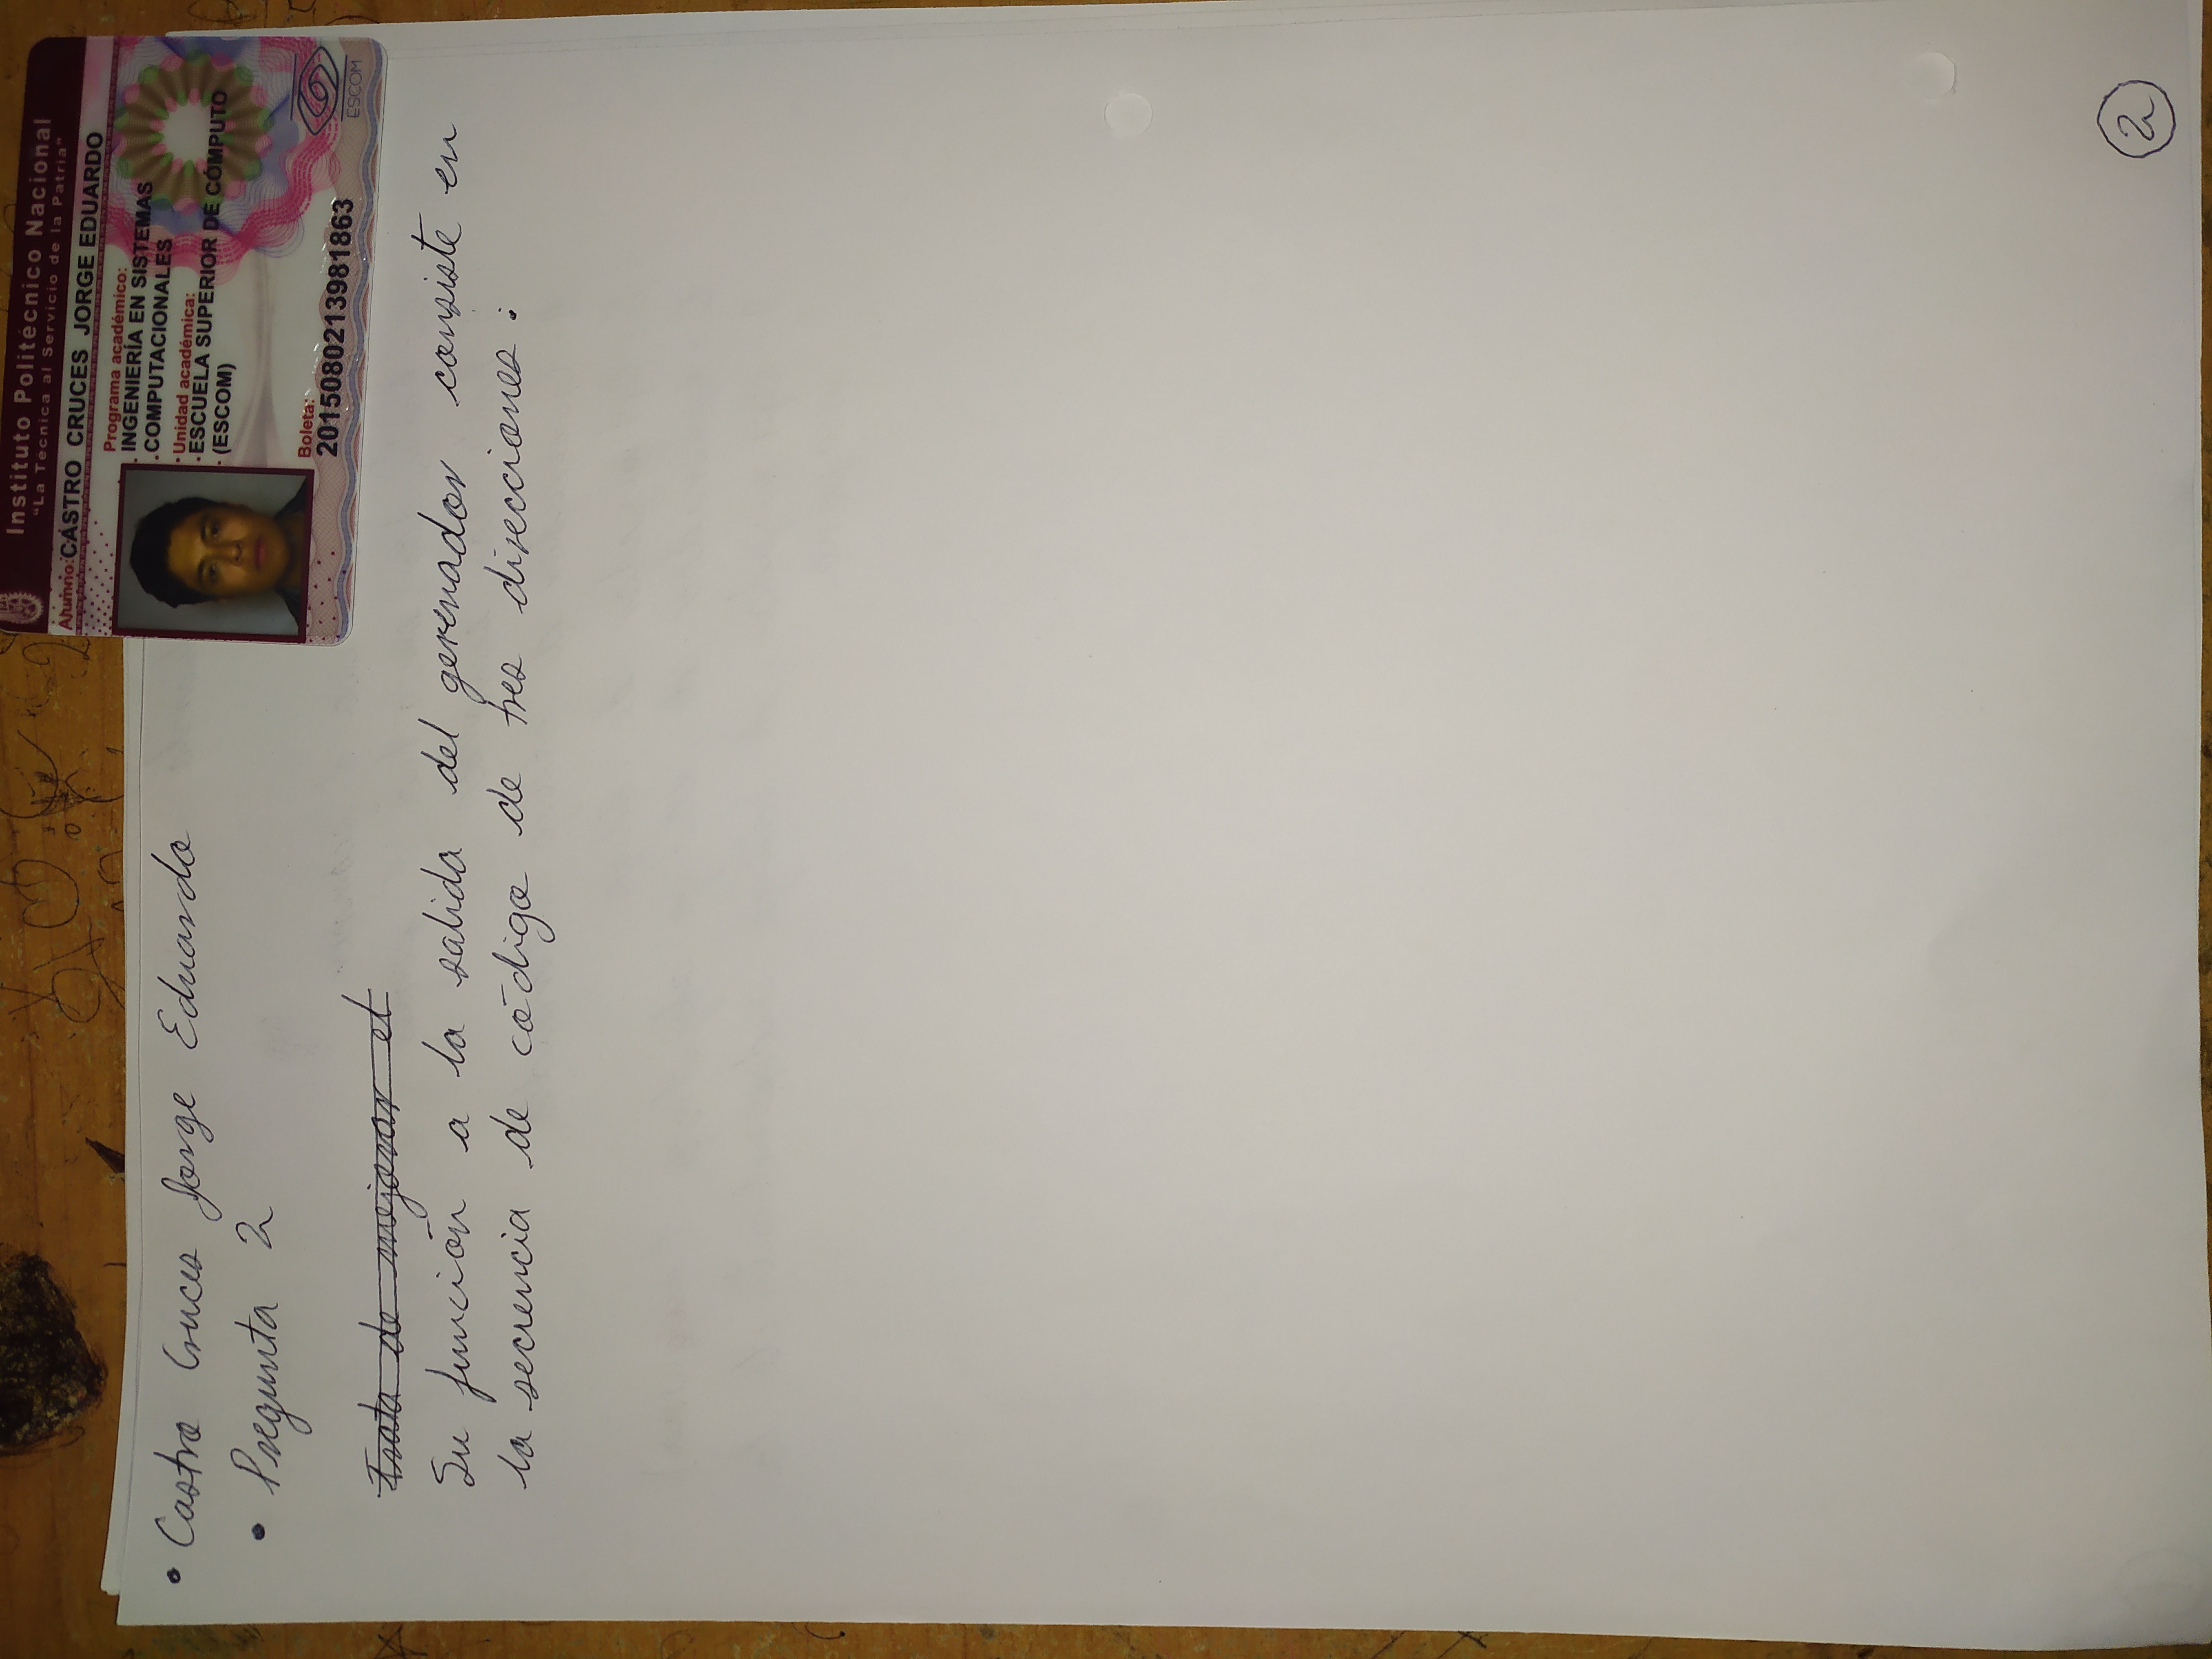 Instituto Politécnico Nacional
"La Técnica al Servicio de la Patria"
Alumno: CASTRO CRUCES JORGE EDUARDO
Programa académico:
INGENIERÍA EN SISTEMAS
COMPUTACIONALES
Unidad académica:
ESCUELA SUPERIOR DE CÓMPUTO
(ESCOM)
Boleta:
2015080213981863
ESCOM
• Castro Cruces Jorge Eduardo
• Pregunta 2
Trata de mejorar el
Su función a la salida del gerenador consiste en
la secuencia de código de tres direcciones:
2